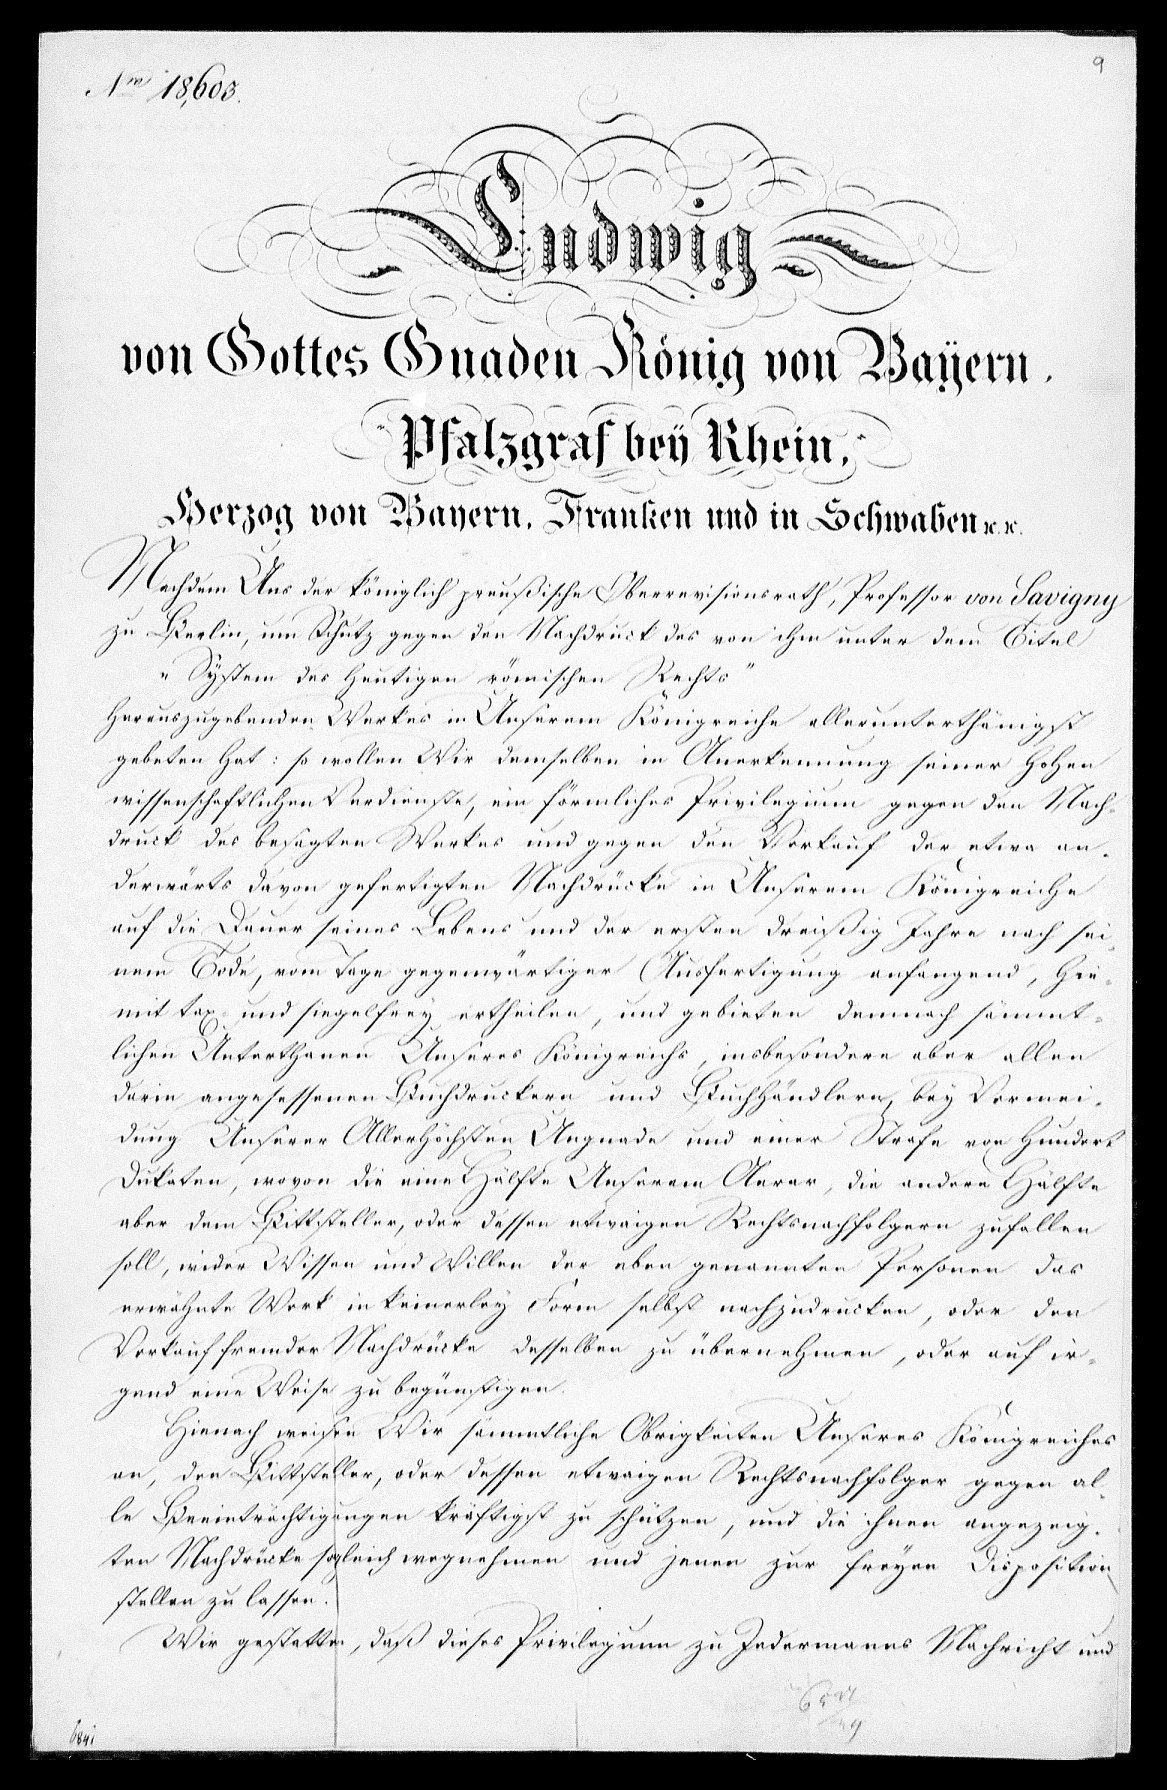 Nro 18,603.
9
Ludwig
von Gottes Gnaden König von Bayern,
Pfalzgraf bey Rhein,
Herzog von Bayern, Franken und in Schwaben ꝛc. ꝛc.
Nachdem Uns der königlich preußische Oberrevisionsrath, Professor von Savigny
zu Berlin, um Schutz gegen den Nachdruck des von ihm unter dem Titel
"System des heutigen römischen Rechts"
herauszugebenden Werkes in Unserem Königreiche allerunterthänigst
gebeten hat: so wollen Wir demselben in Anerkennung seiner hohen
wissenschaftlichen Verdienste, ein förmliches Privilegium gegen den Nach-
druck des besagten Werkes und gegen den Verkauf der etwa an-
derwärts davon gefertigten Nachdrücke in Unserem Königreiche
auf die Dauer seines Lebens und der ersten dreißig Jahre nach sei-
nem Tode, vom Tage gegenwärtiger Ausfertigung anfangend, hie-
mit tax- und siegelfrey ertheilen, und gebieten demnach sämmt-
lichen Unterthanen Unseres Königreichs, insbesondere aber allen
darin angesessenen Buchdruckern und Buchhändlern, bey Vermei-
dung Unserer Allerhöchsten Ungnade und einer Strafe von hundert
Dukaten, wovon die eine Hälfte Unserem Aerar, die andere Hälfte
aber dem Bittsteller, oder dessen etwaigen Rechtsnachfolgern zufallen
soll, wider Wissen und Willen der eben genannten Personen das
erwähnte Werk in keinerley Form selbst nachzudrucken, oder den
Verkauf fremder Nachdrücke desselben zu übernehmen, oder auf ir-
gend eine Weise zu begünstigen.
Hienach weisen Wir sämmtliche Obrigkeiten Unseres Königreiches
an, den Bittsteller, oder dessen etwaigen Rechtsnachfolger gegen al-
le Beeinträchtigungen kräftigst zu schützen, und die ihnen angezeig-
ten Nachdrücke sogleich wegnehmen und jenen zur freyen Disposition
stellen zu lassen.
Wir gestatten, daß dieses Privilegium zu Jedermanns Nachricht und
6841